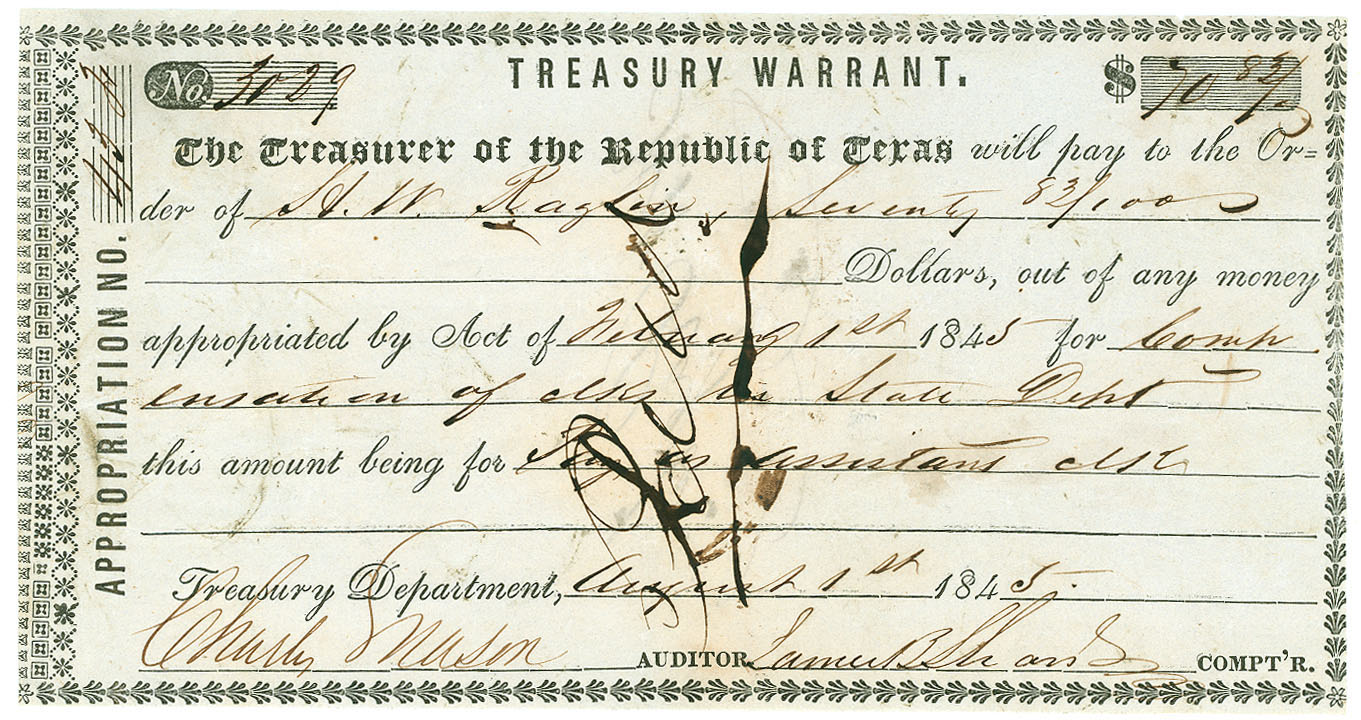 TREASURY WARRANT.
No. 3029
$ 70 83/
The Treasurer of the Republic of Texas will pay to the Or=
der of H. W. Raglin, Seventy 83/100
Dollars, out of any money
appropriated by Act of February 1st 1845 for Comp
ensation of clks in State Dept
this amount being for as assistant clk
Treasury Department, August 1st 1845.
Charles Mason AUDITOR James B Shaw COMPT'R.
APPROPRIATION NO.
Paid